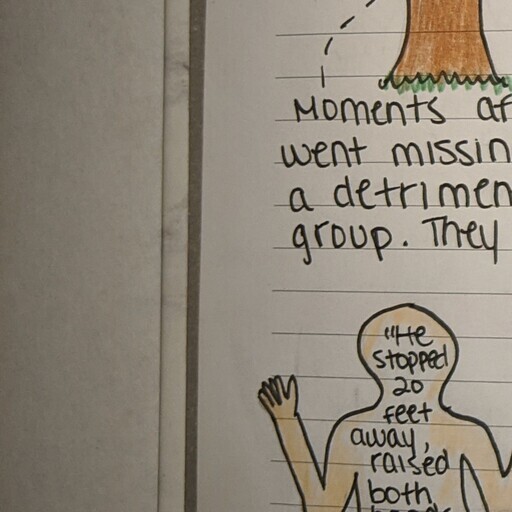 Moments af
went missin
a detrimen
group. They
"He
stopped
20
feet
away,
raised
both